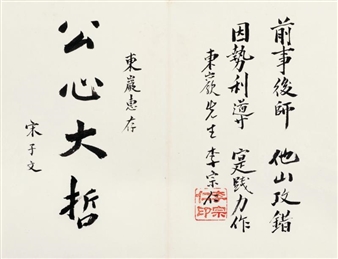 前事後師 他山攻錯
因勢利導 寔踐力作
先生 李宗仁
李宗仁印
東巖惠存
公心大哲
宋子文